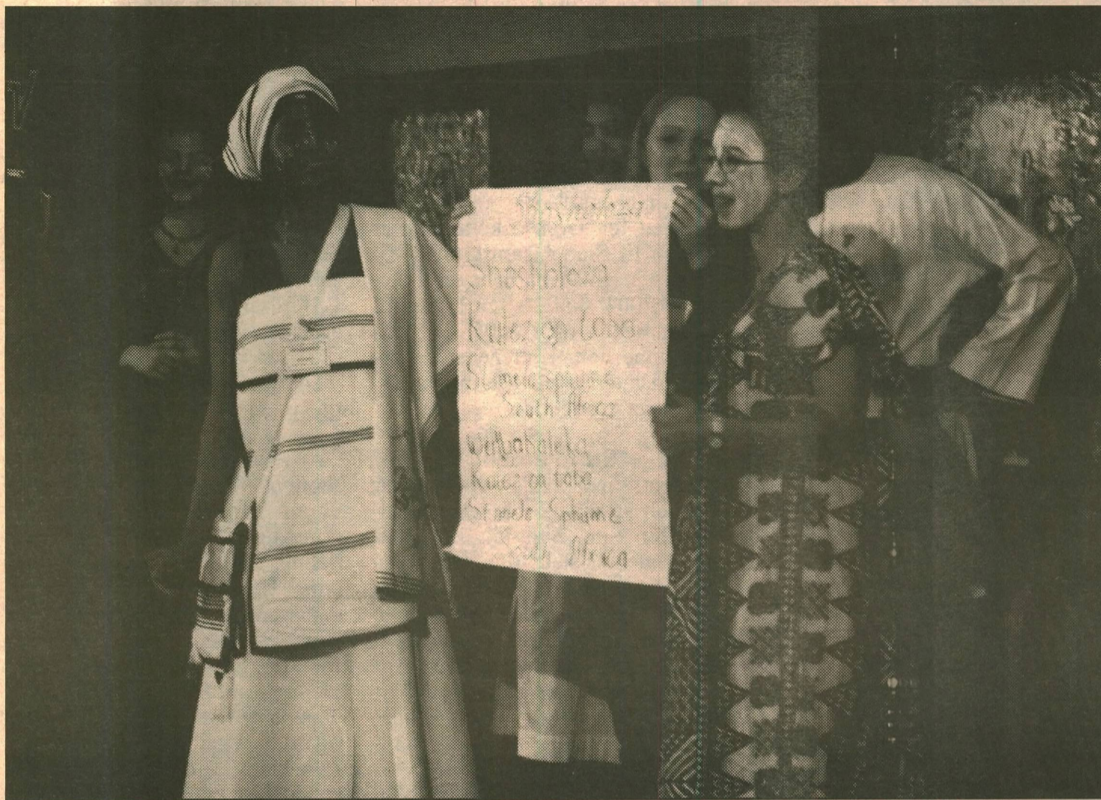 Shosholoza
Shosholoza
Kulez on taba
Stimela sphuma
South Africa
Wenyabaleka
Kulez on taba
Stimela Sphuma
South Africa